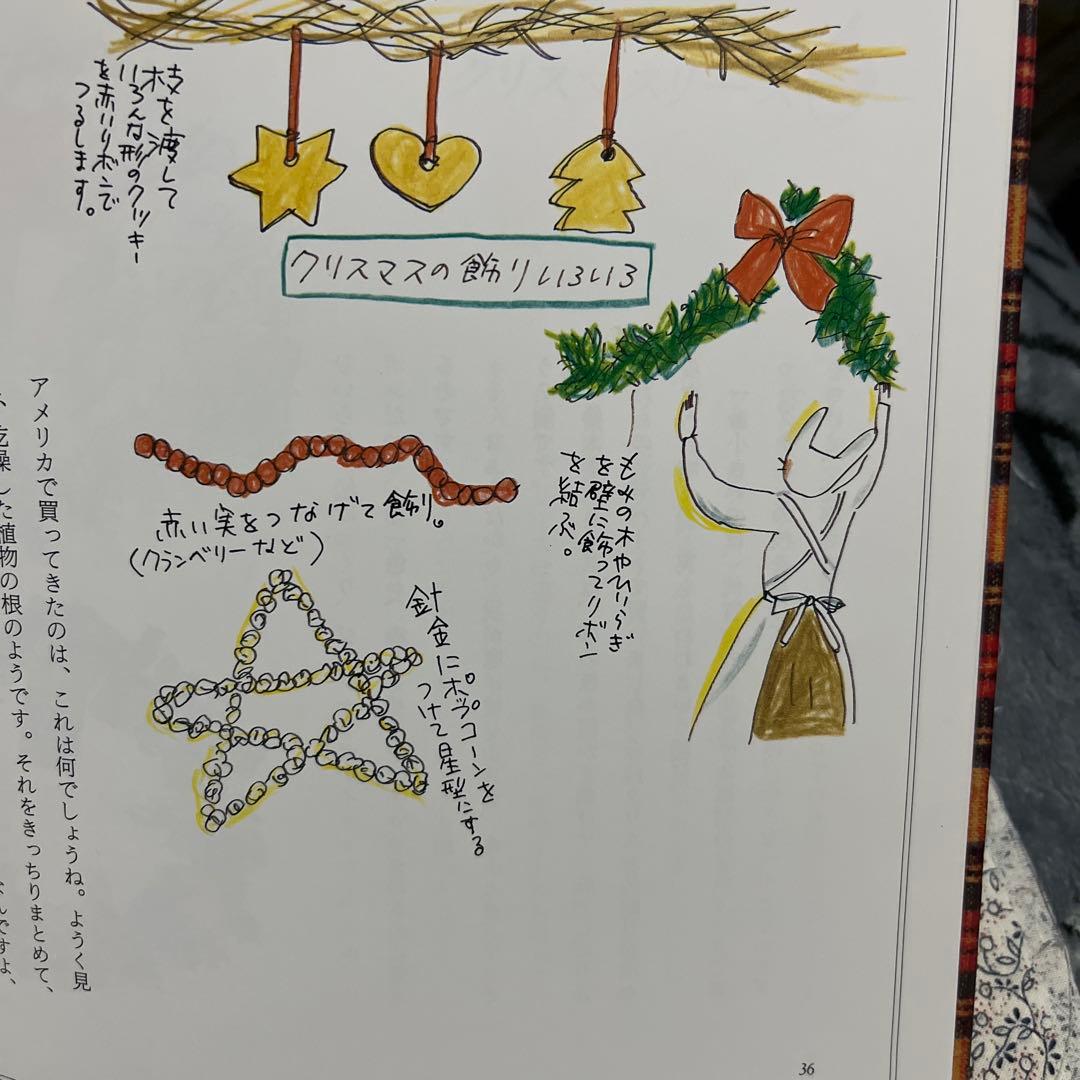 枝を渡して
いろんな形のクッキー
を赤いリボンで
つるします。
クリスマスの飾りいろいろ
もみの木やひいらぎ
を壁に飾ってリボン
を結ぶ。
赤い実をつなげて飾り。
(クランベリーなど)
針金にポップコーンを
つけて星型にする
アメリカで買ってきたのは、これは何でしょうね。ようく見
乾燥した植物の根のようです。それをきっちりまとめて、
なんですよ、
36